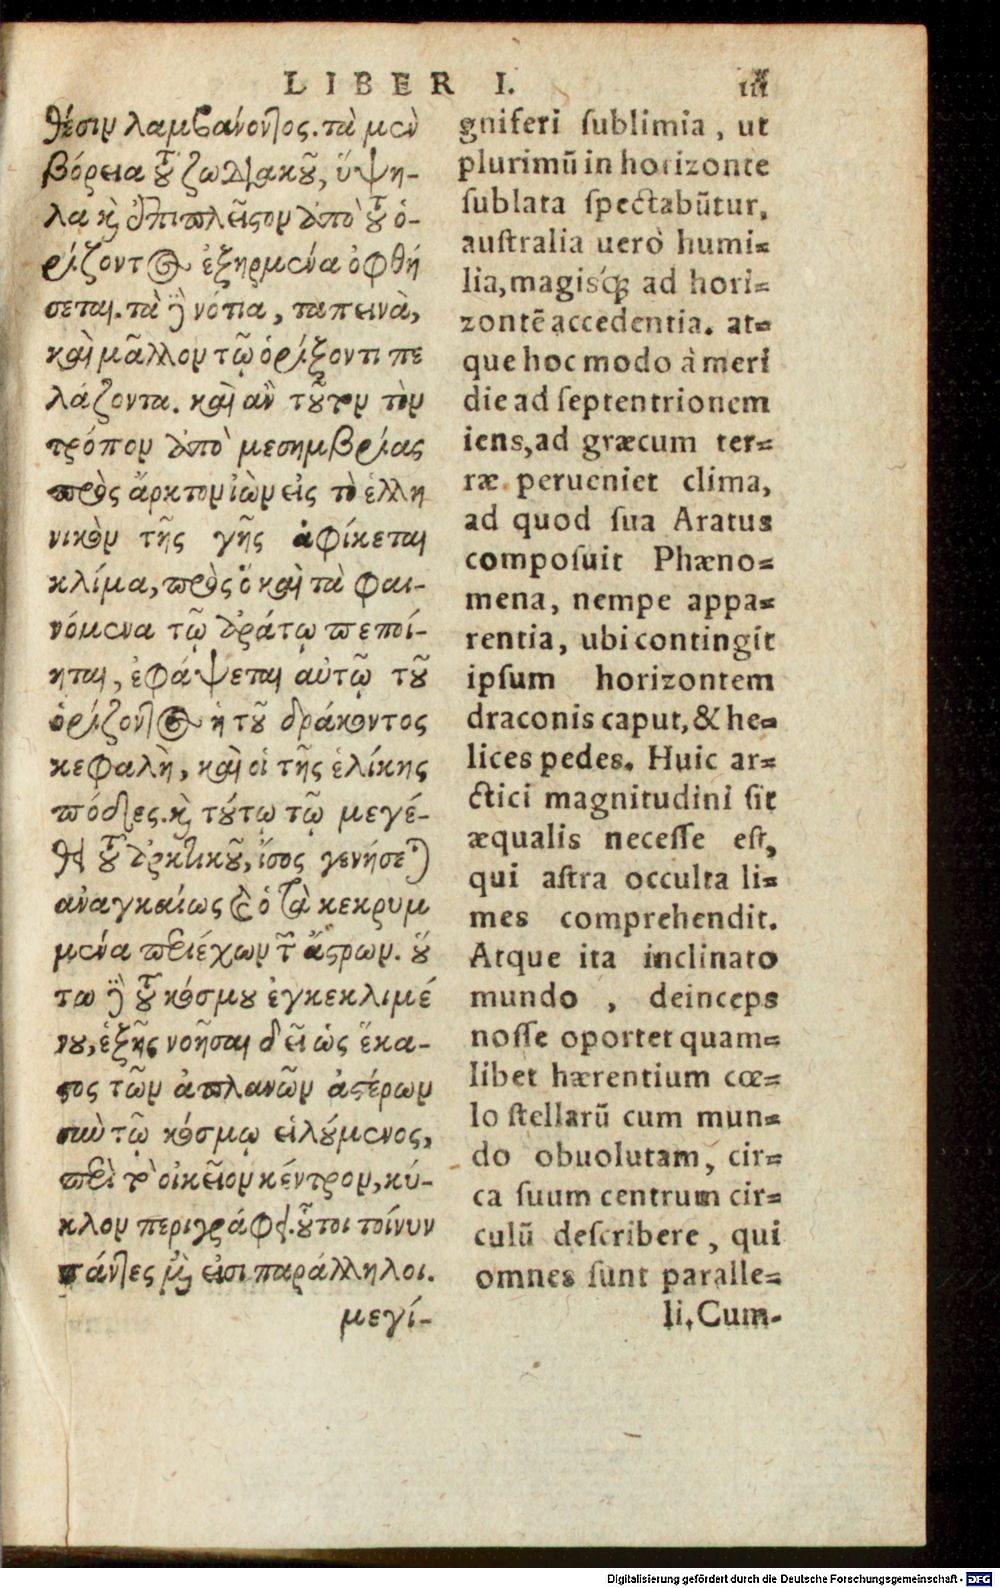 LIBER I.
θέσιν λαμβανόντος. τὰ μὲν
βόρεια τοῦ ζωδιακοῦ, ὕψη-
λα καὶ ἐπιπλεῖστον ἀπὸ τοῦ ὁ-
ρίζοντος ἐξηρμένα ὀφθή
σεται. τὰ δὲ νότια, ταπεινὰ,
καὶ μᾶλλον τῷ ὁρίζοντι πε
λάζοντα. καὶ ἂν τοῦτον τὸν
τρόπον ἀπὸ μεσημβρίας
πρὸς ἄρκτον ἰὼν εἰς τὸ ἑλλη
νικὸν τῆς γῆς ἀφίκεται
κλίμα, πρὸς ὃ καὶ τὰ φαι-
νόμενα τῷ ἀράτῳ πεποί-
ηται, ἐφάψεται αὐτῷ τοῦ
ὁρίζοντος ἡ τοῦ δράκοντος
κεφαλὴ, καὶ οἱ τῆς ἑλίκης
πόδες. καὶ τούτῳ τῷ μεγέ-
θει τοῦ ἀρκτικοῦ, ἴσος γενήσεται
ἀναγκαίως καὶ ὁ τὰ κεκρυμ
μένα περιέχων τῶν ἄστρων. οὕ
τω δὲ τοῦ κόσμου ἐγκεκλιμέ
νου, ἑξῆς νοῆσαι δεῖ ὡς ἕκα-
στος τῶν ἀπλανῶν ἀστέρων
σὺν τῷ κόσμῳ εἱλούμενος,
περὶ τὸ οἰκεῖον κέντρον, κύ-
κλον περιγράφει. οὗτοι τοίνυν
πάντες μέν εἰσι παράλληλοι.
μεγί-
gniferi sublimia, ut
plurimū in horizonte
sublata spectabūtur,
australia uerò humi=
lia, magisq́; ad hori=
zontē accedentia. at=
que hoc modo à meri
die ad septentrionem
iens, ad græcum ter=
ræ perueniet clima,
ad quod sua Aratus
composuit Phæno=
mena, nempe appa=
rentia, ubi contingit
ipsum horizontem
draconis caput, & he=
lices pedes. Huic ar=
ctici magnitudini sit
æqualis necesse est,
qui astra occulta li=
mes comprehendit.
Atque ita inclinato
mundo , deinceps
nosse oportet quam=
libet hærentium cœ=
lo stellarū cum mun=
do obuolutam, cir=
ca suum centrum cir=
culū describere, qui
omnes sunt paralle=
li. Cum-
Digitalisierung gefördert durch die Deutsche Forschungsgemeinschaft - DFG